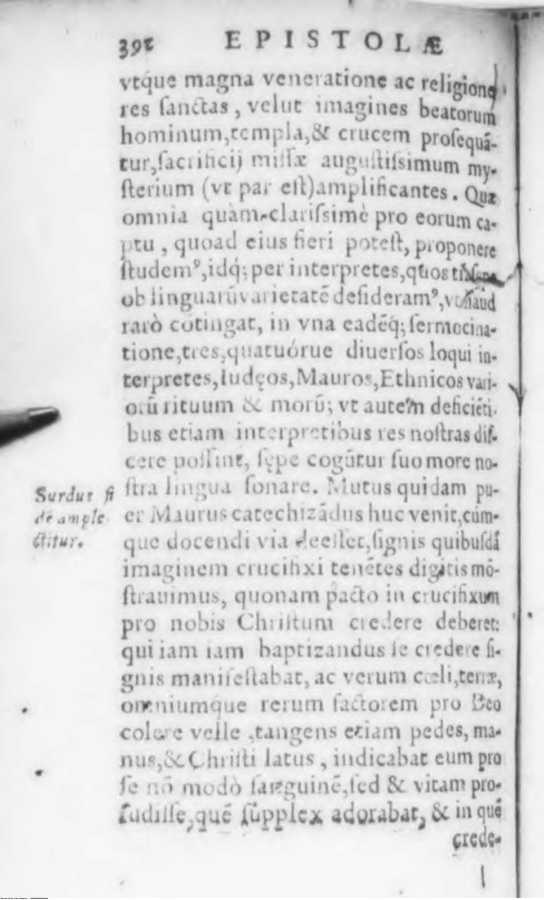 392 EPISTOLÆ
vtque magna veneratione ac religione,
res ſanctas, velut imagines beatorum
hominum, templa, & crucem proſequā-
tur, ſacrificij miſſæ auguſtiſsimum my-
ſterium (vt par eſt) amplificantes. Quæ
omnia quàm clariſsimè pro eorum ca-
ptu, quoad eius fieri poteſt, proponere
ſtudemꝰ, idq́; per interpretes, quos
ob linguarū varietatē deſideramꝰ, vt haud
rarò cōtingat, in vna eadēq́; ſermocina-
tione, tres, quatuórue diuerſos loqui in-
terpretes, Iudęos, Mauros, Ethnicos vari-
orū rituum & morū; vt autem deficiēti-
bus etiam interpretibus res noſtras diſ-
cere poſſint, ſępe cogūtur ſuo more no-
ſtra lingua ſonare. Mutus quidam pu-
er Maurus catechizādus huc venit, cùm-
que docendi via deeſſet, ſignis quibuſdā
imaginem crucifixi tenētes digitis mō-
ſtrauimus, quonam pacto in crucifixum
pro nobis Chriſtum credere deberet:
qui iam iam baptizandus ſe credere ſi-
gnis manifeſtabat, ac verum cœli, terræ,
omniumque rerum factorem pro Deo
colere velle, tangens etiam pedes, ma-
nus, & Chriſti latus, indicabat eum pro
ſe nō modò ſanguinē, ſed & vitam pro-
fudiſſe, quē ſupplex adorabat, & in quē
crede-
Surdus fi
de ample
ctitur.